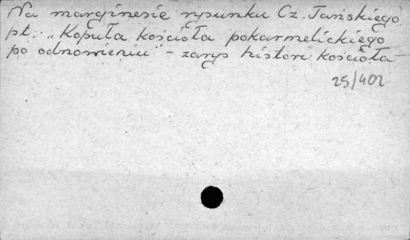 Na marginesie rysunku Cz. Tańskiego
pt. "Kopuła kościoła pokarmelickiego
po odnowieniu" - zarys histori kościoła -
25/402